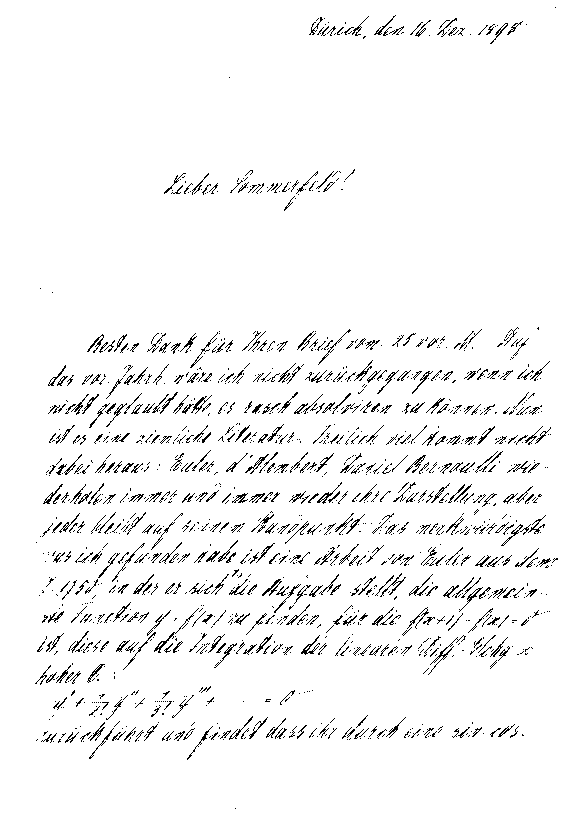 Zürich, den 16. Dez. 1898
Lieber Sommerfeld!
Besten Dank für Ihren Brief vom 25 vor. M. Auf
das vor. Jahrh. wäre ich nicht zurückgegangen, wenn ich
nicht geglaubt hätte, es rasch absolviren zu können. Nun
ist es eine ziemliche Literatur. Freilich viel kommt nicht
dabei heraus: Euler, d'Alembert, Daniel Bernoulli wie-
derholen immer und immer wieder ihre Darstellung, aber
jeder bleibt auf seinem Standpunkt. Das merkwürdigste
was ich gefunden habe ist eine Arbeit von Euler aus dem
J. 1750, in der er sich die Aufgabe stellt, die allgemein-
ste Function y = f(x) zu finden, für die f(x+1) - f(x) = 0
ist, diese auf die Integration der linearen Diff. Glchg ∞
hoher O.:
y' + 1/2! y'' + 1/3! y''' + . . . = 0
zurückführt und findet dass ihr durch eine sin. cos.